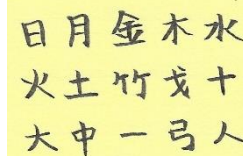 日月金木水
火土竹戈十
大中一弓人